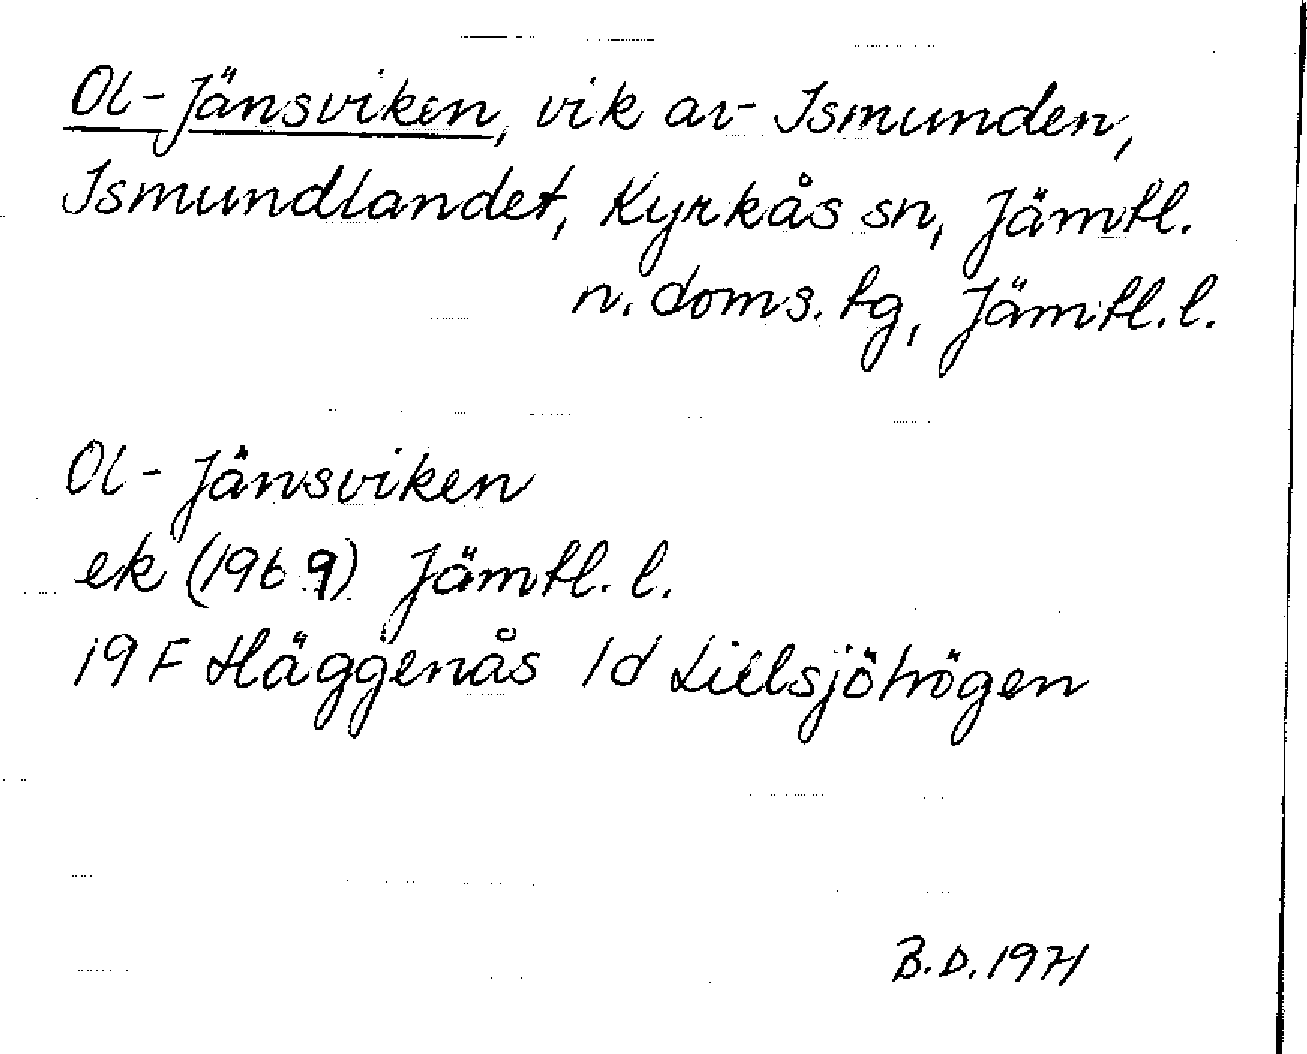 Ol-Jänsviken, vik av Ismunden,
Ismundlandet, Kyrkås sn, Jämtl.
n. doms. tg, Jämtl. l.
Ol-Jänsviken
ek (1969) Jämtl. l.
19F Häggenås 1d Lillsjöhögen
B.D. 1971